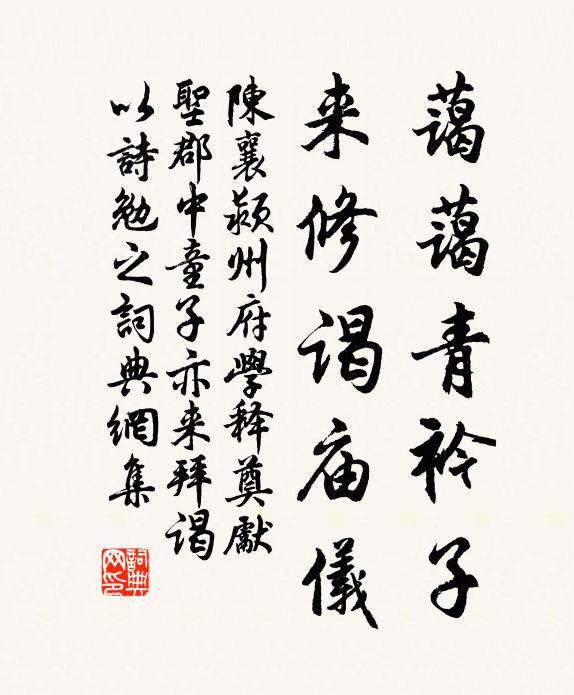 藹藹青衿子
来修谒庙儀
陳襄颍州府學释奠獻
聖郡中童子亦来拜谒
以詩勉之詞典網集
詞典
网印